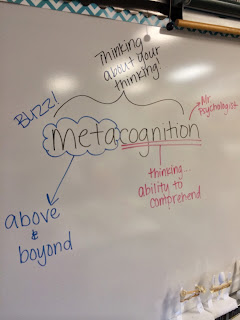 Thinking
about your
thinking!
Buzz!
metacognition
Mr.
Psychologist
thinking...
ability to
comprehend
above
&
beyond